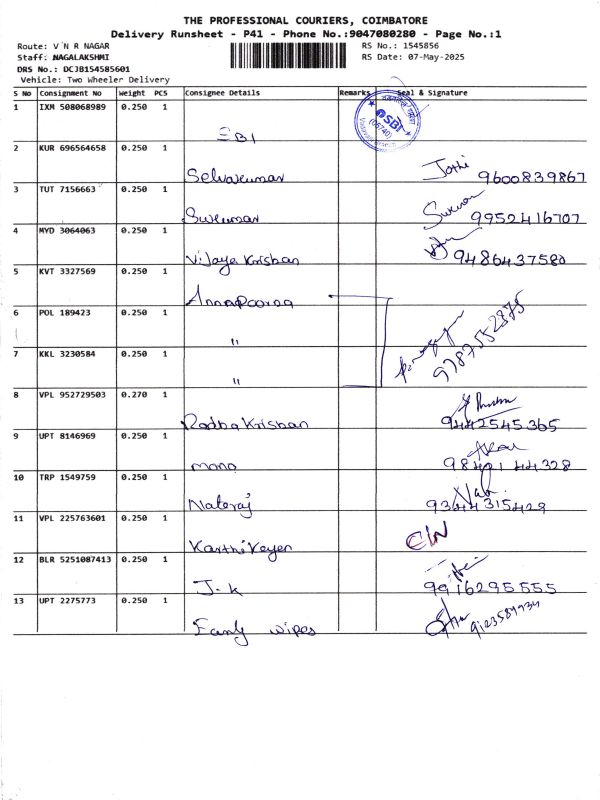 THE PROFESSIONAL COURIERS, COIMBATORE
Delivery Runsheet - P41 - Phone No.:9047080280 - Page No.:1
Route: V N R NAGAR
Staff: NAGALAKSHMI
DRS No.: DCJB154585601
Vehicle: Two Wheeler Delivery
RS No.: 1545856
RS Date: 07-May-2025
S No Consignment No Weight PCS Consignee Details Remarks Seal & Signature
1 IXM 508068989 0.250 1 SBI SBI (05740)
2 KUR 696564658 0.250 1 Selvakumar Jothi 9600839867
3 TUT 7156663 0.250 1 Sukumar 9952416707
4 MYD 3064063 0.250 1 Vijaya Krishan 9486437580
5 KVT 3327569 0.250 1 Annapoorna
6 POL 189423 0.250 1 " 9787552375
7 KKL 3230584 0.250 1 "
8 VPL 952729503 0.270 1 Radha Krishan 9442545365
9 UPT 8146969 0.250 1 mano 98421 44328
10 TRP 1549759 0.250 1 Nataraj 9344315429
11 VPL 225763601 0.250 1 Karthikeyen
12 BLR 5251087413 0.250 1 J.K 9916295555
13 UPT 2275773 0.250 1 wipes